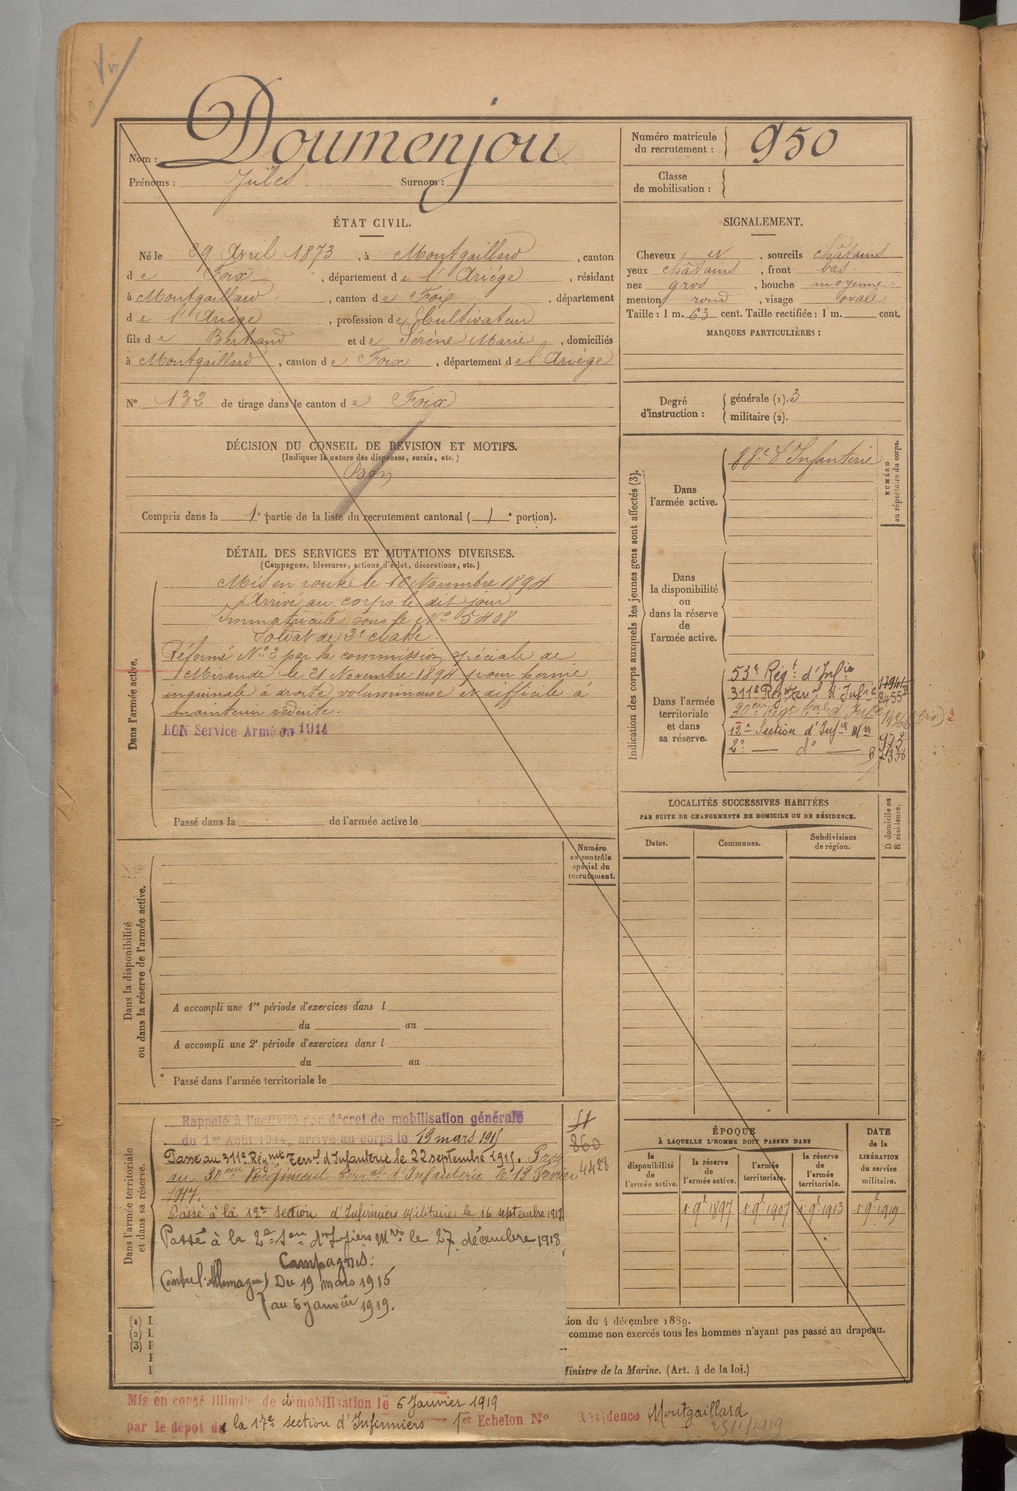 Nom : Doumenjou
Prénoms : Jules Surnom :
Numéro matricule
du recrutement : 950
Classe
de mobilisation :
ÉTAT CIVIL.
Né le 29 Avril 1873, à Montgaillard, canton
de Foix, département de l'Ariége, résidant
à Montgaillard, canton de Foix, département
de l'Ariége, profession de Cultivateur
fils de Bertrand et de Sérène Marie, domiciliés
à Montgaillard, canton de Foix, département de l'Ariége
N° 132 de tirage dans le canton de Foix
SIGNALEMENT.
Cheveux et, sourcils châtains
yeux châtains, front bas
nez gros, bouche moyenne
menton rond, visage ovale
Taille : 1 m. 63 cent. Taille rectifiée : 1 m. cent.
MARQUES PARTICULIÈRES :
Degré
d'instruction :
générale (1). 3
militaire (2).
DÉCISION DU CONSEIL DE REVISION ET MOTIFS.
(Indiquer la nature des dispenses, sursis, etc.)
Bon
Compris dans la 1e partie de la liste du recrutement cantonal (1e portion).
DÉTAIL DES SERVICES ET MUTATIONS DIVERSES.
(Campagnes, blessures, actions d'éclat, décorations, etc.)
Dans l'armée active.
Mis en route le 16 Novembre 1894
Arrivé au corps le dit jour
Immatriculé sous le N° 5408
Soldat de 2e classe.
Réformé N° 2 par la commission spéciale de
Mirande le 21 Novembre 1894 pour hernie
inguinale à droite volumineuse et difficile à
maintenir réduite.
BON Service Armé en 1914
Passé dans la de l'armée active le
Indication des corps auxquels les jeunes gens sont affectés (3).
NUMÉRO
au répertoire du corps.
Dans
l'armée active.
88e d'Infanterie
Dans
la disponibilité
ou
dans la réserve
de
l'armée active.
Dans l'armée
territoriale
et dans
sa réserve.
53e Régt d'Infie
311e Rég Terral d'Infie
90eme Régt Terral d'Infie
12e Section d'Infirs Mres
2e — do —
LOCALITÉS SUCCESSIVES HABITÉES
PAR SUITE DE CHANGEMENTS DE DOMICILE OU DE RÉSIDENCE.
Dates. Communes. Subdivisions
de région.
D domicile ou
R résidence.
Dans la disponibilité
ou dans la réserve de l'armée active.
Numéro
au contrôle
spécial du
recrutement.
A accompli une 1re période d'exercices dans l
du au
A accompli une 2e période d'exercices dans l
du au
Passé dans l'armée territoriale le
Dans l'armée territoriale
et dans sa réserve.
Rappelé à l'activité par décret de mobilisation générale
du 1er Août 1914, arrivé au corps le 19 mars 1915
Passé au 311e Régime Terral d'Infanterie le 22 septembre 1915. Passé
au 90eme Régiment Terral d'Infanterie le 13 Février
1917.
Passé à la 12e section d'Infirmiers Militaires le 16 septembre 1917
Passé à la 2e Son d'Infirs Mres le 27 décembre 1918
Campagnes :
Contre l'Allemagne Du 19 mars 1915
au 6 janvier 1919.
860
4428
ÉPOQUE
À LAQUELLE L'HOMME DOIT PASSER DANS
DATE
de la
LIBÉRATION
du service
militaire.
la
disponibilité
de
l'armée active.
la réserve
de
l'armée active.
l'armée
territoriale.
la réserve
de
l'armée
territoriale.
1 9e 1897 1 9e 1907 1 9e 1913 1 9e 1919
(1)
(2)
(3)
ion du 4 décembre 1889.
comme non exercés tous les hommes n'ayant pas passé au drapeau.
Ministre de la Marine. (Art. 4 de la loi.)
Mis en congé illimité de démobilisation le 6 Janvier 1919
par le dépôt de la 17e section d'Infirmiers 1er Echelon N° Résidence Montgaillard